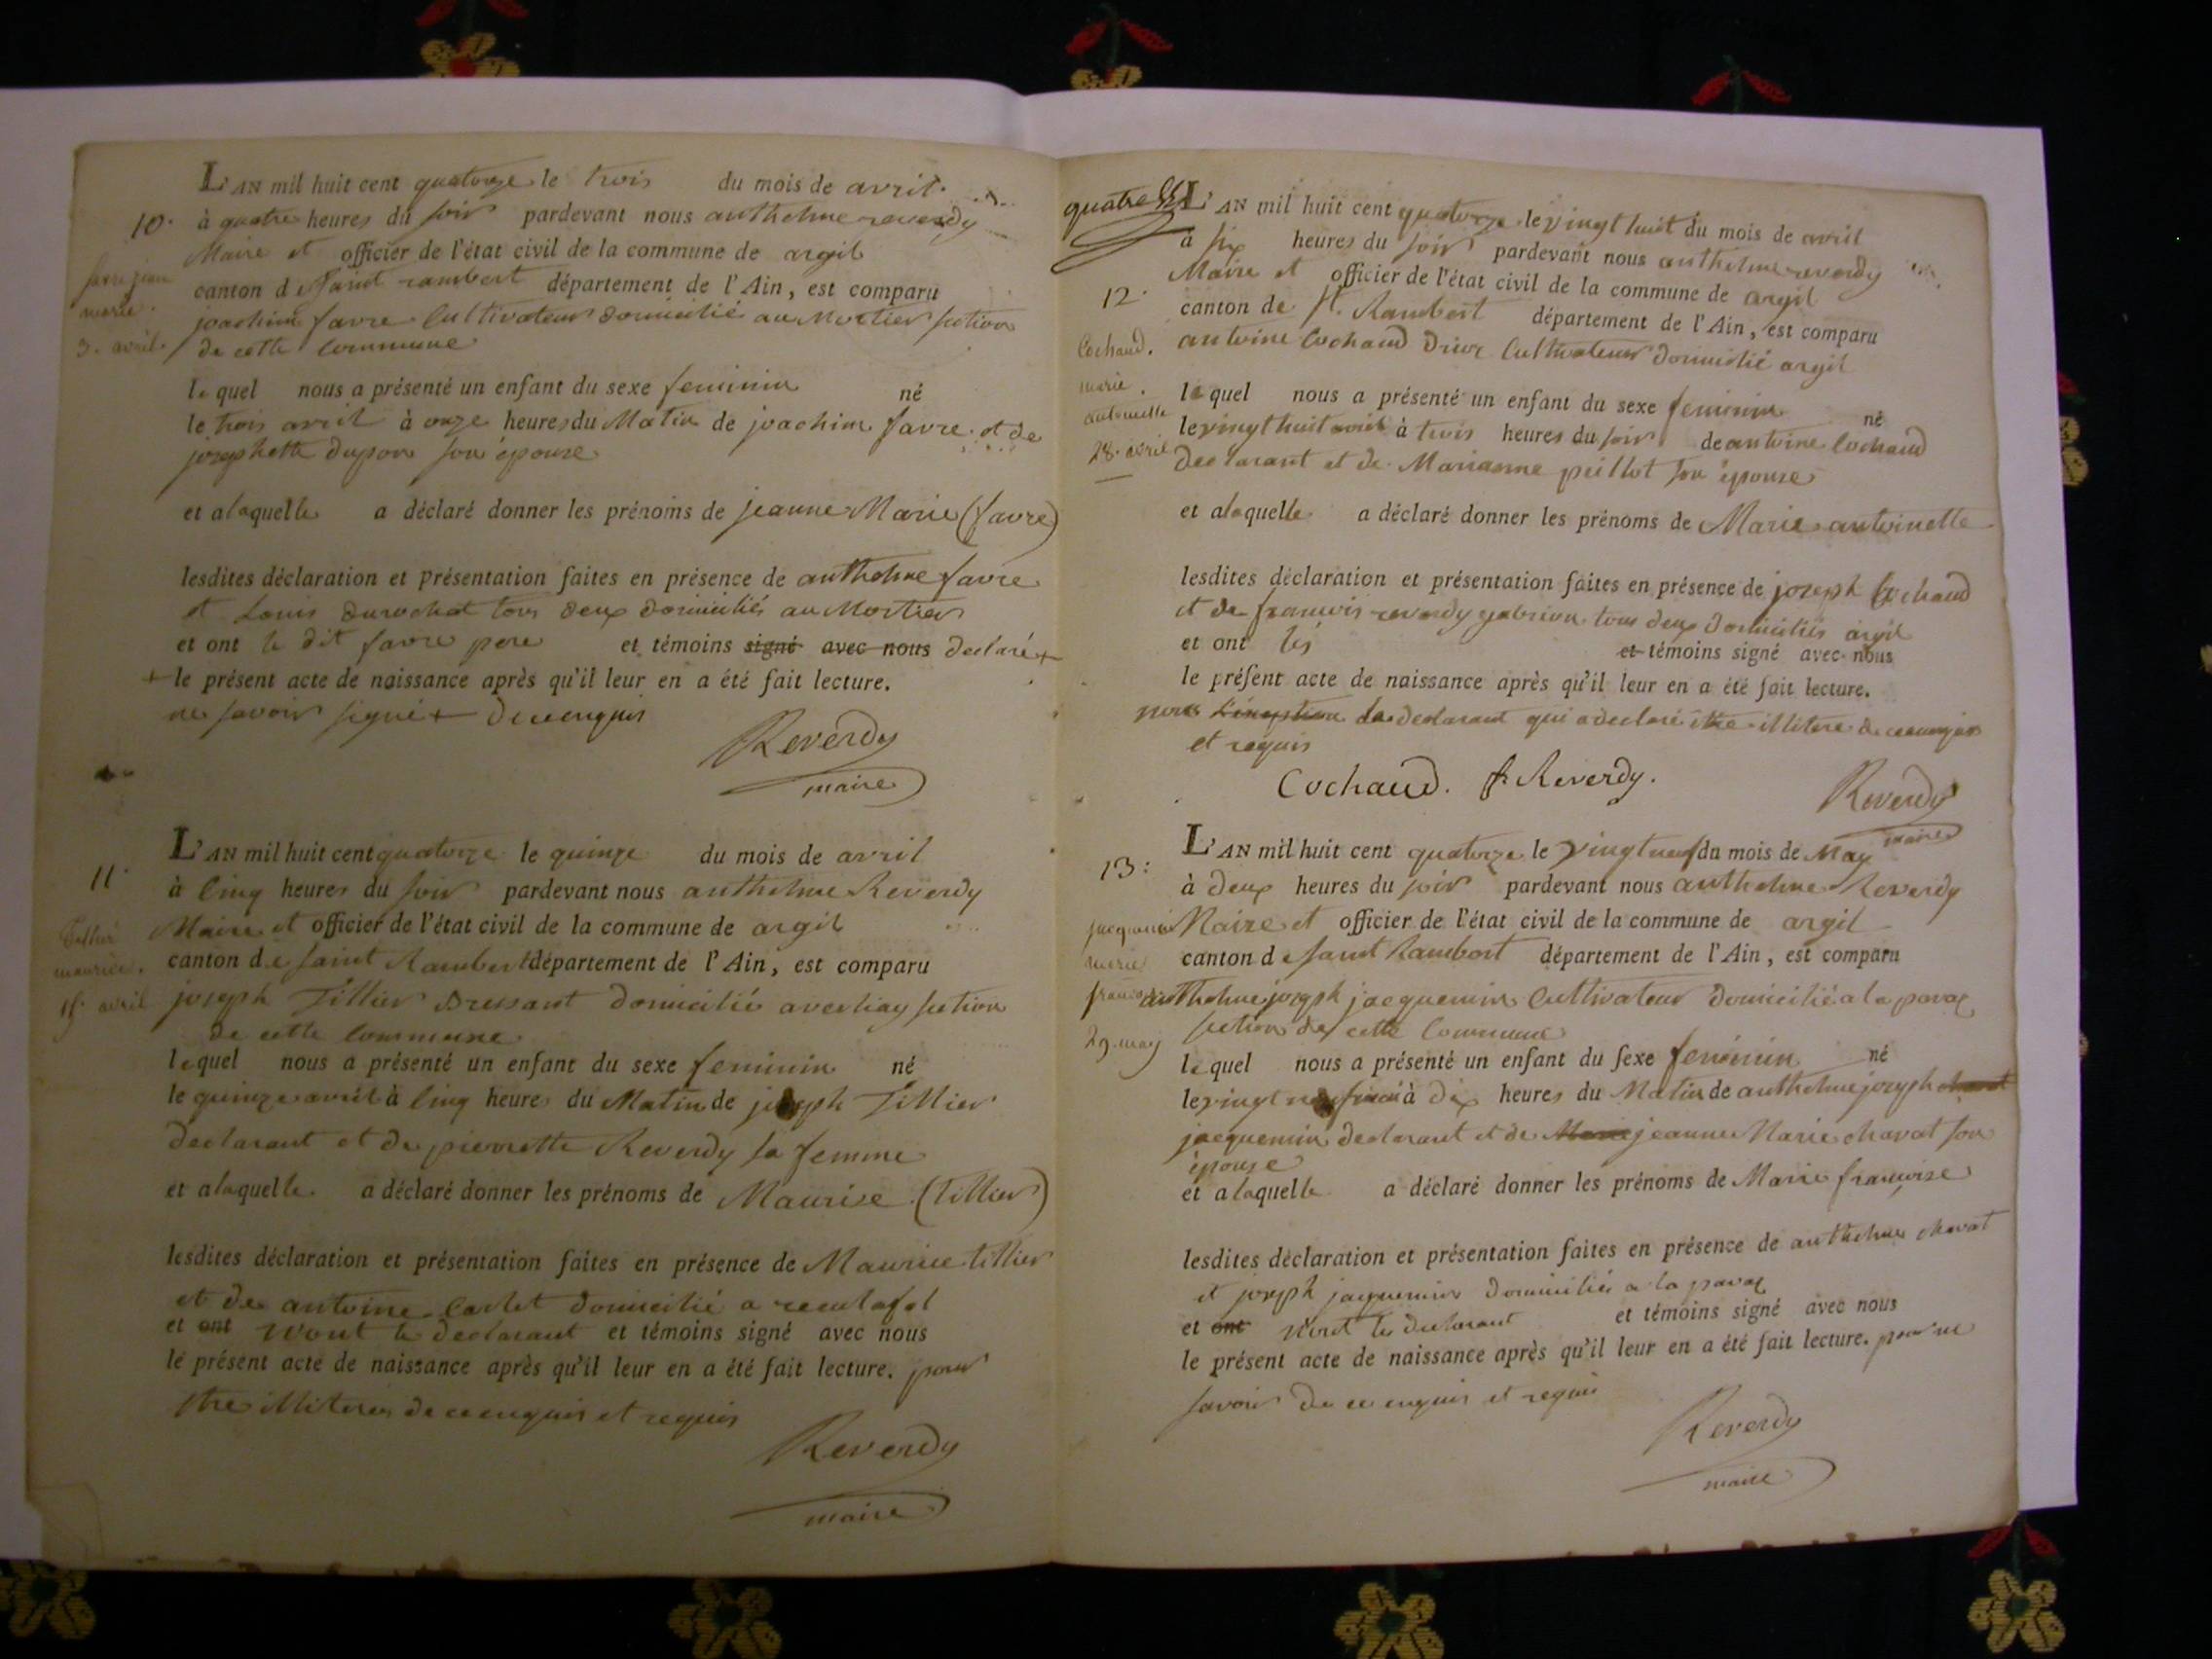 L'AN mil huit cent quatorze le trois du mois de avril.
10. à quatre heures du soir pardevant nous anthelme reverdy
Maire et officier de l'état civil de la commune de argil
favre jeanne
canton de Saint rambert département de l'Ain, est comparu
marie.
joachim favre Cultivateur domicilié au Mortier section
3. avril.
de cette Commune
lequel nous a présenté un enfant du sexe feminin né
le trois avril à onze heures du Matin de joachim favre et de
josephette dupon son épouse
et alaquelle a déclaré donner les prénoms de jeanne Marie (favre)
lesdites déclaration et présentation faites en présence de anthelme favre
et Louis durochat tous deux domiciliés au Mortier
et ont le dit favre pere et témoins signé avec nous declaré +
+ le présent acte de naissance après qu'il leur en a été fait lecture.
ne savoir signé + de ce enquis
Reverdy
maire
L'AN mil huit cent quatorze le quinze du mois de avril
11.
à Cinq heures du soir pardevant nous anthelme Reverdy
Maire et officier de l'état civil de la commune de argil
tillier
maurise.
canton de saint Rambert département de l'Ain, est comparu
15. avril
joseph Tillier domicilié section
de cette Commune
lequel nous a présenté un enfant du sexe feminin né
le quinze avril à Cinq heures du Matin de joseph Tillier
declarant et de pierrette Reverdy sa femme
et alaquelle a déclaré donner les prénoms de Maurise (Tillier)
lesdites déclaration et présentation faites en présence de Maurice tillier
et de antoine domicilié a
et ont n'ont le declarant et témoins signé avec nous
le présent acte de naissance après qu'il leur en a été fait lecture. pour
être illiteres de ce enquis et requis
Reverdy
maire
quatre
L'AN mil huit cent quatorze le vingt huit du mois de avril
à six heures du soir pardevant nous anthelme reverdy
Maire et officier de l'état civil de la commune de argil
12.
canton de St. Rambert département de l'Ain, est comparu
Cochaud.
antoine Cochaud Cultivateur domicilié argil
marie.
lequel nous a présenté un enfant du sexe feminin né
antoinette
le vingt huit avril à trois heures du soir de antoine Cochaud
28. avril
declarant et de Marianne son épouse
et alaquelle a déclaré donner les prénoms de Marie antoinette
lesdites déclaration et présentation faites en présence de joseph Cochaud
et de francois reverdy tous deux domiciliés argil
et ont les et témoins signé avec nous
le présent acte de naissance après qu'il leur en a été fait lecture.
declarant qui a declaré être illitere de ce enquis
et requis
Cochaud. f. Reverdy.
Reverdy
maire
L'AN mil huit cent quatorze le vingt neuf du mois de May
13:
à deux heures du soir pardevant nous anthelme Reverdy
jacquemin
Maire et officier de l'état civil de la commune de argil
marie
canton de saint Rambert département de l'Ain, est comparu
anthelme joseph jacquemin Cultivateur domicilié a la
section de cette Commune
29. may
lequel nous a présenté un enfant du sexe feminin né
le vingt neuf mai à dix heures du Matin de anthelme joseph
jacquemin declarant et de Marie jeanne Marie chavat son
épouse
et alaquelle a déclaré donner les prénoms de Marie francoise
lesdites déclaration et présentation faites en présence de anthelme chavat
et joseph jacquemin domiciliés a la
et ont n'ont les declarant et témoins signé avec nous
le présent acte de naissance après qu'il leur en a été fait lecture. pour ne
savoir de ce enquis et requis
Reverdy
maire